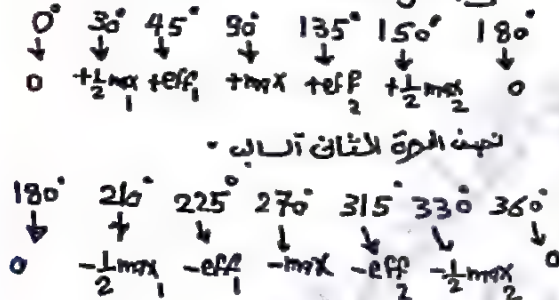 0° 30° 45° 90° 135° 150° 180°
↓ ↓ ↓ ↓ ↓ ↓ ↓
0 +½max₁ +eff₁ +max +eff₂ +½max₂ 0
نصف الدورة الثانى السالب •
180° 210° 225° 270° 315° 330° 360°
↓ ↓ ↓ ↓ ↓ ↓ ↓
0 -½max₁ -eff₁ -max -eff₂ -½max₂ 0